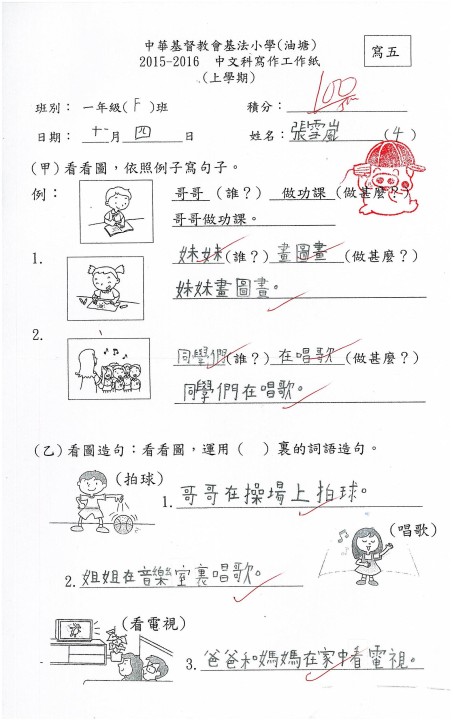 中華基督教會基法小學(油塘)
寫五
2015-2016 中文科寫作工作紙
(上學期)
班別： 一年級(F)班 積分：100
日期： 十一月 四 日 姓名：張雪嵐 (4)
(甲)看看圖，依照例子寫句子。
例： 哥哥(誰？) 做功課(做甚麼？)
哥哥做功課。
1. 妹妹(誰？) 畫圖畫(做甚麼？)
妹妹畫圖畫。
2. 同學們(誰？) 在唱歌(做甚麼？)
同學們在唱歌。
(乙)看圖造句：看看圖，運用( )裏的詞語造句。
(拍球)
1. 哥哥在操場上拍球。
(唱歌)
2. 姐姐在音樂室裏唱歌。
(看電視)
3. 爸爸和媽媽在家中看電視。